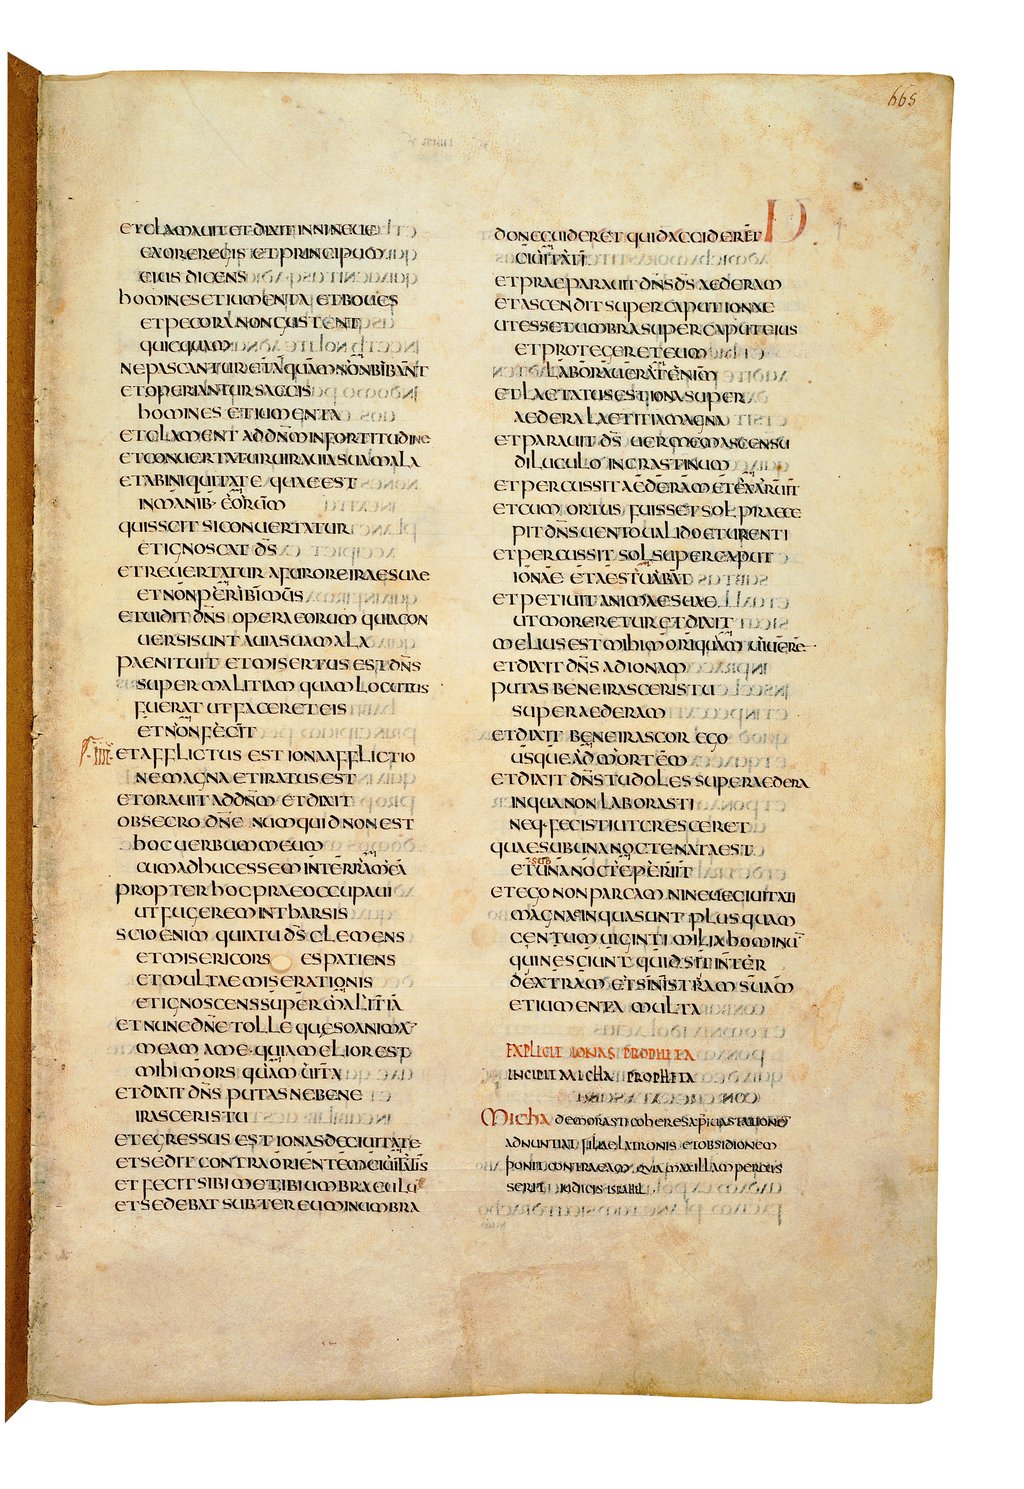 665
ETCLAMAUIT ET DIXIT IN NINEUE
EX ORE REGIS ET PRINCIPUM
EIUS DICENS
HOMINES ET IUMENTA ET BOUES
ET PECORA NON GUSTENT
QUICQUAM
NEPASCANTUR ET AQUAM NON BIBANT
ET OPERIANTUR SACCIS
HOMINES ET IUMENTA
ET CLAMENT AD DNM IN FORTITUDINE
ET CONUERTATUR UIR A UIA SUA MALA
ET AB INIQUITATE QUAE EST
IN MANIB· EORUM
QUIS SCIT SI CONUERTATUR
ET IGNOSCAT DS
ET REUERTATUR A FURORE IRAE SUAE
ET NON PERIBIMUS
ET UIDIT DNS OPERA EORUM QUIA CON
UERSI SUNT A UIA SUA MALA
PAENITUIT ET MISERTUS EST DNS
SUPER MALITIAM QUAM LOCUTUS
FUERAT UT FACERET EIS
ET NON FECIT
IIII ET AFFLICTUS EST IONA AFFLICTIO
NE MAGNA ET IRATUS EST
ET ORAUIT AD DNM ET DIXIT
OBSECRO DNE NUMQUID NON EST
HOC UERBUM MEUM
CUM ADHUC ESSEM IN TERRA MEA
PROPTER HOC PRAEOCCUPAUI
UT FUGEREM IN THARSIS
SCIO ENIM QUIA TU DS CLEMENS
ET MISERICORS ES PATIENS
ET MULTAE MISERATIONIS
ET IGNOSCENS SUPER MALITIA
ET NUNC DNE TOLLE QUESO ANIMA
MEAM A ME· QUIA MELIOR EST
MIHI MORS QUAM UITA
ET DIXIT DNS PUTAS NE BENE
IRASCERIS TU
ET EGRESSUS EST IONAS DE CIUITATE
ET SEDIT CONTRA ORIENTEM CIUITATIS
ET FECIT SIBIMET IBI UMBRACULU
ET SEDEBAT SUBTER EUM IN UMBRA
DONEC UIDERET QUID ACCIDERET
CIUITATI
ET PRAEPARAUIT DNS DS AEDERAM
ET ASCENDIT SUPER CAPUT IONAE
UT ESSET UMBRA SUPER CAPUT EIUS
ET PROTEGERET EUM
LABORAUERAT ENIM
ET LAETATUS EST IONA SUPER
AEDERA LAETITIA MAGNA
ET PARAUIT DS UERMEM ASCENSU
DILUCULO IN CRASTINUM
ET PERCUSSIT AEDERAM ET EXARUIT
ET CUM ORTUS FUISSET SOL PRAECE
PIT DNS UENTO CALIDO ET URENTI
ET PERCUSSIT SOL SUPER CAPUT
IONAE ET AESTUABAT
ET PETIUIT ANIMAE SUAE
UT MORERETUR ET DIXIT
MELIUS EST MIHI MORI QUAM UIUERE
ET DIXIT DNS AD IONAM
PUTAS BENE IRASCERIS TU
SUPER AEDERAM
ET DIXIT BENE IRASCOR EGO
USQUE AD MORTEM
ET DIXIT DNS TU DOLES SUPER AEDERA
IN QUA NON LABORASTI
NEQ· FECISTI UT CRESCERET
QUAE SUB UNA NOCTE NATA EST
SUB
ET UNA NOCTE PERIIT
ET EGO NON PARCAM NINEUE CIUITATI
MAGNAE IN QUA SUNT PLUS QUAM
CENTUM UIGINTI MILIA HOMINU
QUI NESCIUNT QUID SIT INTER
DEXTRAM ET SINISTRAM SUAM
ET IUMENTA MULTA
EXPLICIT IONAS PROPHETA
INCIPIT MICHA PROPHETA
MICHA DE MORASTI COHERES
ADNUNTIAT FILIAE LATRONIS ET OBSIDIONEM
PONIT CONTRA EAM QUIA MAXILLAM PERCUS
SERIT IUDICIS ISRAHEL